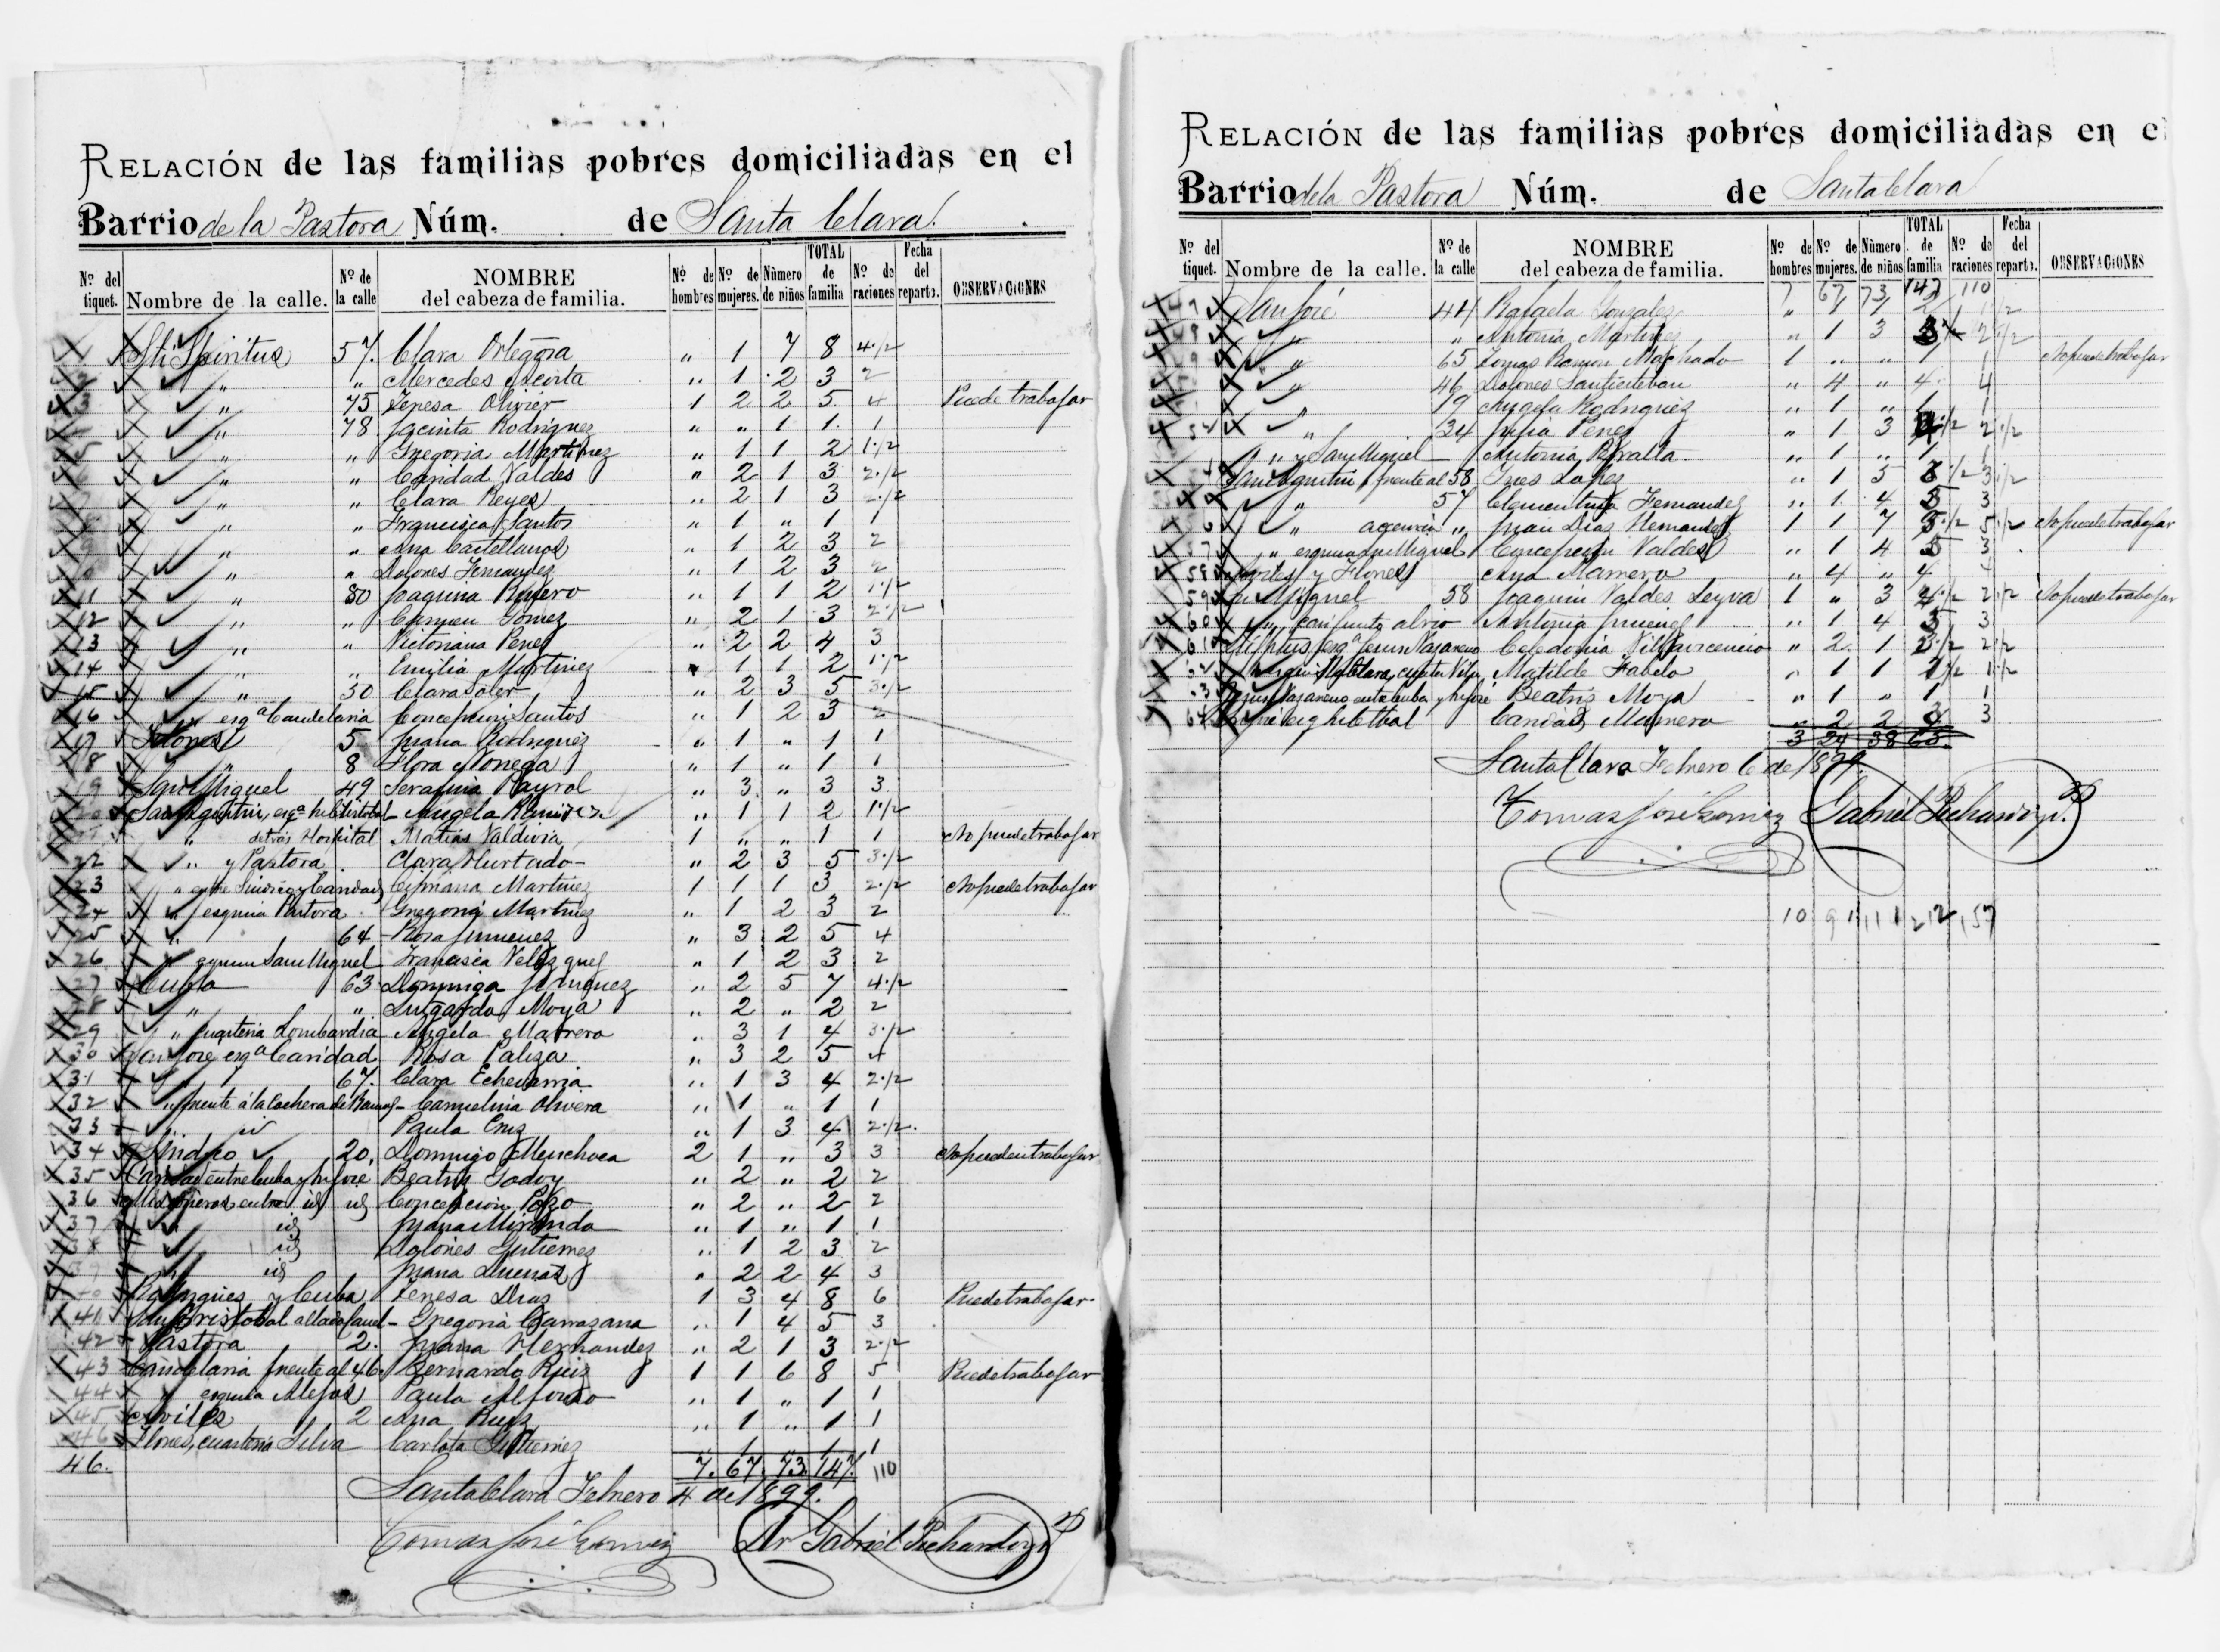 RELACIÓN de las familias pobres domiciliadas en el
Barrio de la Pastora Núm. de Santa Clara.
Nº del tiquet. Nombre de la calle. Nº de la calle NOMBRE del cabeza de familia. Nº de hombres Nº de mujeres. Número de niños TOTAL de familia Nº de raciones Fecha del reparto. OBSERVACIONES
Sti Spiritus 57. Clara Ortegosa " 1 7 8 4 1/2
2 " " Mercedes Acosta " 1 2 3 2
3 " 75 Teresa Olivier 1 2 2 5 4 Puede trabajar
" 78 Jacinta Rodriguez " " 1 1 1
5 " " Gregoria Martinez " 1 1 2 1 1/2
" " Caridad Valdes " 2 1 3 2 1/2
" " Clara Reyes " 2 1 3 2 1/2
" " Francisca Santos " 1 " 1 1
" " Ana Castellanos " 1 2 3 2
" " Dolores Fernandez " 1 2 3 2
11 " 80 Joaquina Rivero " 1 1 2 1 1/2
12 " " Carmen Gomez " 2 1 3 2 1/2
13 " " Victoriana Perez " 2 2 4 3
14 " " Emilia Martinez " 1 1 2 1 1/2
15 " 50 Clara Soler " 2 3 5 3 1/2
16 " esqª Candelaria Concepcion Santos " 1 2 3 2
17 Flores 5 Juana Rodriguez " 1 " 1 1
18 " 8 Flora " 1 " 1 1
19 San Miguel 49 Serafina Payrol " 3 " 3 3
San Agustin, esqª Angela Ramirez " 1 1 2 1 1/2
" detrás Hospital Matias Valdivia 1 " " 1 1 No puede trabajar
22 " y Pastora Clara Hurtado " 2 3 5 3 1/2
23 " entre y Caridad Cipriana Martinez 1 1 1 3 2 1/2 No puede trabajar
24 " esquina Pastora Gregoria Martinez " 1 2 3 2
25 " 64 Rosa Jimenez " 3 2 5 4
26 " esquina San Miguel Francisca Velazquez " 1 2 3 2
27 Cuba 63 Dominga " 2 5 7 4 1/2
28 " " Lutgarda Moya " 2 " 2 2
29 " cuarteria Lombardia Angela Marrero " 3 1 4 3 1/2
30 San José esqª Caridad Rosa Paliza " 3 2 5 4
31 " 67. Clara Echevarria " 1 3 4 2 1/2
32 " frente á la Cochera de Ramos Carmelina Olivera " 1 " 1 1
33 " id Paula Cruz " 1 3 4 2 1/2.
34 Sindico 20. Domingo Menchaca 2 1 " 3 3 No pueden trabajar
35 Caridad entre Cuba y Sn José Beatriz Godoy " 2 " 2 2
36 entre id id Concepcion Pozo " 2 " 2 2
37 " id Juana Miranda " 1 " 1 1
38 " id Dolores Gutierrez " 1 2 3 2
39 " id Juana Duenas " 2 2 4 3
y Cuba Teresa Dias 1 3 4 8 6 Puede trabajar
41 San Cristobal al lado Gregoria Carrazana " 1 4 5 3
42 Pastora 2. Juana Hernandez " 2 1 3 2 1/2
43 Candelaria frente al 46. Bernardo Ruiz 1 1 6 8 5 Puede trabajar
44 " esquina Paula Alfonso " 1 " 1 1
45 2 Ana Ruiz " 1 " 1 1
46 Flores, cuarteria Silva Carlota Gutierrez " 1 " 1 1
46. 7. 67. 73. 147. 110
Santa Clara Febrero 4 de 1899.
Tomas José Gomez Dr Gabriel Pichardo
RELACIÓN de las familias pobres domiciliadas en el
Barrio de la Pastora Núm. de Santa Clara
Nº del tiquet. Nombre de la calle. Nº de la calle NOMBRE del cabeza de familia. Nº de hombres Nº de mujeres. Número de niños TOTAL de familia Nº de raciones Fecha del reparto. OBSERVACIONES
7 67 73 147 110
San José 44 Rafaela Gonzalez " 1 1 2 1 1/2
" " Antonia Martinez " 1 3 2 1/2
" 65 Tomas Ramon Machado 1 " " 1 1 No puede trabajar
" 46 Dolores Santiesteban " 4 " 4 4
" 19 Angela Rodriguez " 1 " 1 1
" 34 Perez " 1 3 4 2 1/2
" y San Miguel Antonia Peralta " 1 " 1 1
San Agustin frente al 58 Ines Lopez " 1 5 3 1/2
" 57 Clementina Fernandez " 1 4 5 3
" accesoria " Juan Dias Hernandez 1 1 7 5 1/2 No puede trabajar
" esquina San Miguel Concepcion Valdes " 1 4 5 3
y Flores Ana Marrero " 4 " 4 4
59 San Miguel 58 Joaquin Valdes Leyva 1 " 3 4 2 1/2 No puede trabajar
60 " Antonia Jimenez " 1 4 5 3
61 esqª Jesus Nazareno Celedonia Villavicencio " 2 1 3 2 1/2
62 Matilde Fabelo " 1 1 2 1 1/2
63 Jesus Nazareno entre Cuba y Sn José Beatriz Moya " 1 " 1 1
64 Caridad Marrero " 2 2 4 3
3 24 38 65
Santa Clara Febrero 6 de 1899.
Tomas José Gomez Gabriel Pichardo
10 91 111 212 157